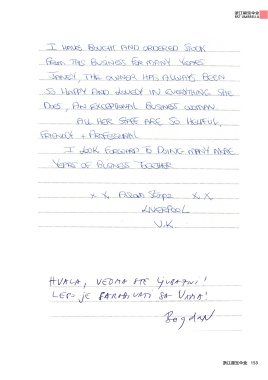 I HAVE BOUGHT AND ORDERED STOCK
FROM THIS BUSINESS FOR MANY YEARS
THE OWNER HAS ALWAYS BEEN
SO HAPPY AND LOVELY IN EVERYTHING SHE
DOES, AN EXCEPTIONAL BUSINESS WOMAN.
ALL HER STAFF ARE SO HELPFUL,
FRIENDLY + PROFESSIONAL
I LOOK FORWARD TO DOING MANY MORE
YEARS OF BUSINESS TOGETHER
X X X X
LIVERPOOL
U.K
HVALA, VEOMA STE LJUBAZNI!
LEPO JE SARAĐIVATI SA VAMA!
Bogdan
153